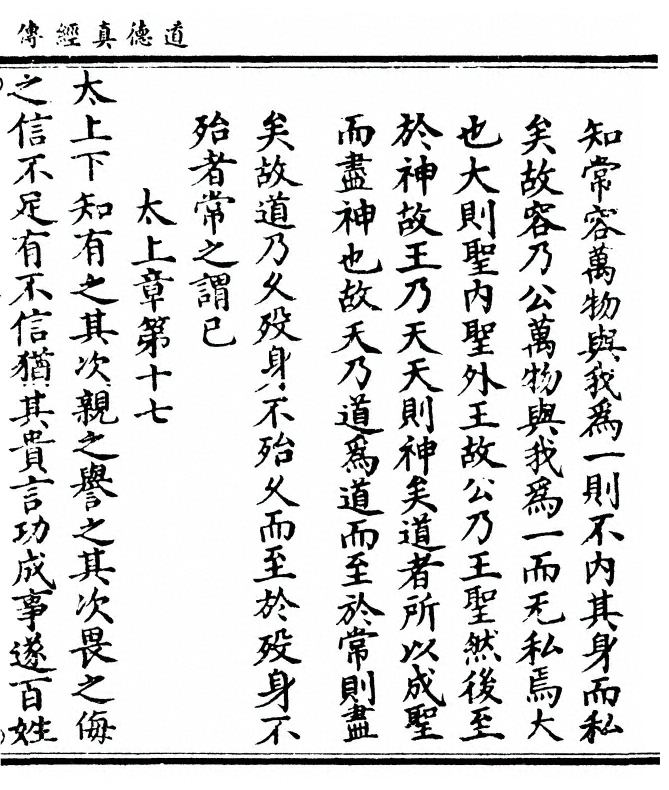 道德真經傳
知常容萬物與我爲一則不内其身而私
矣故容乃公萬物與我爲一而无私焉大
也大則聖内聖外王故公乃王聖然後至
於神故王乃天天則神矣道者所以成聖
而盡神也故天乃道爲道而至於常則盡
矣故道乃久歿身不殆久而至於歿身不
殆者常之謂已
太上章第十七
太上下知有之其次親之譽之其次畏之侮
之信不足有不信猶其貴言功成事遂百姓